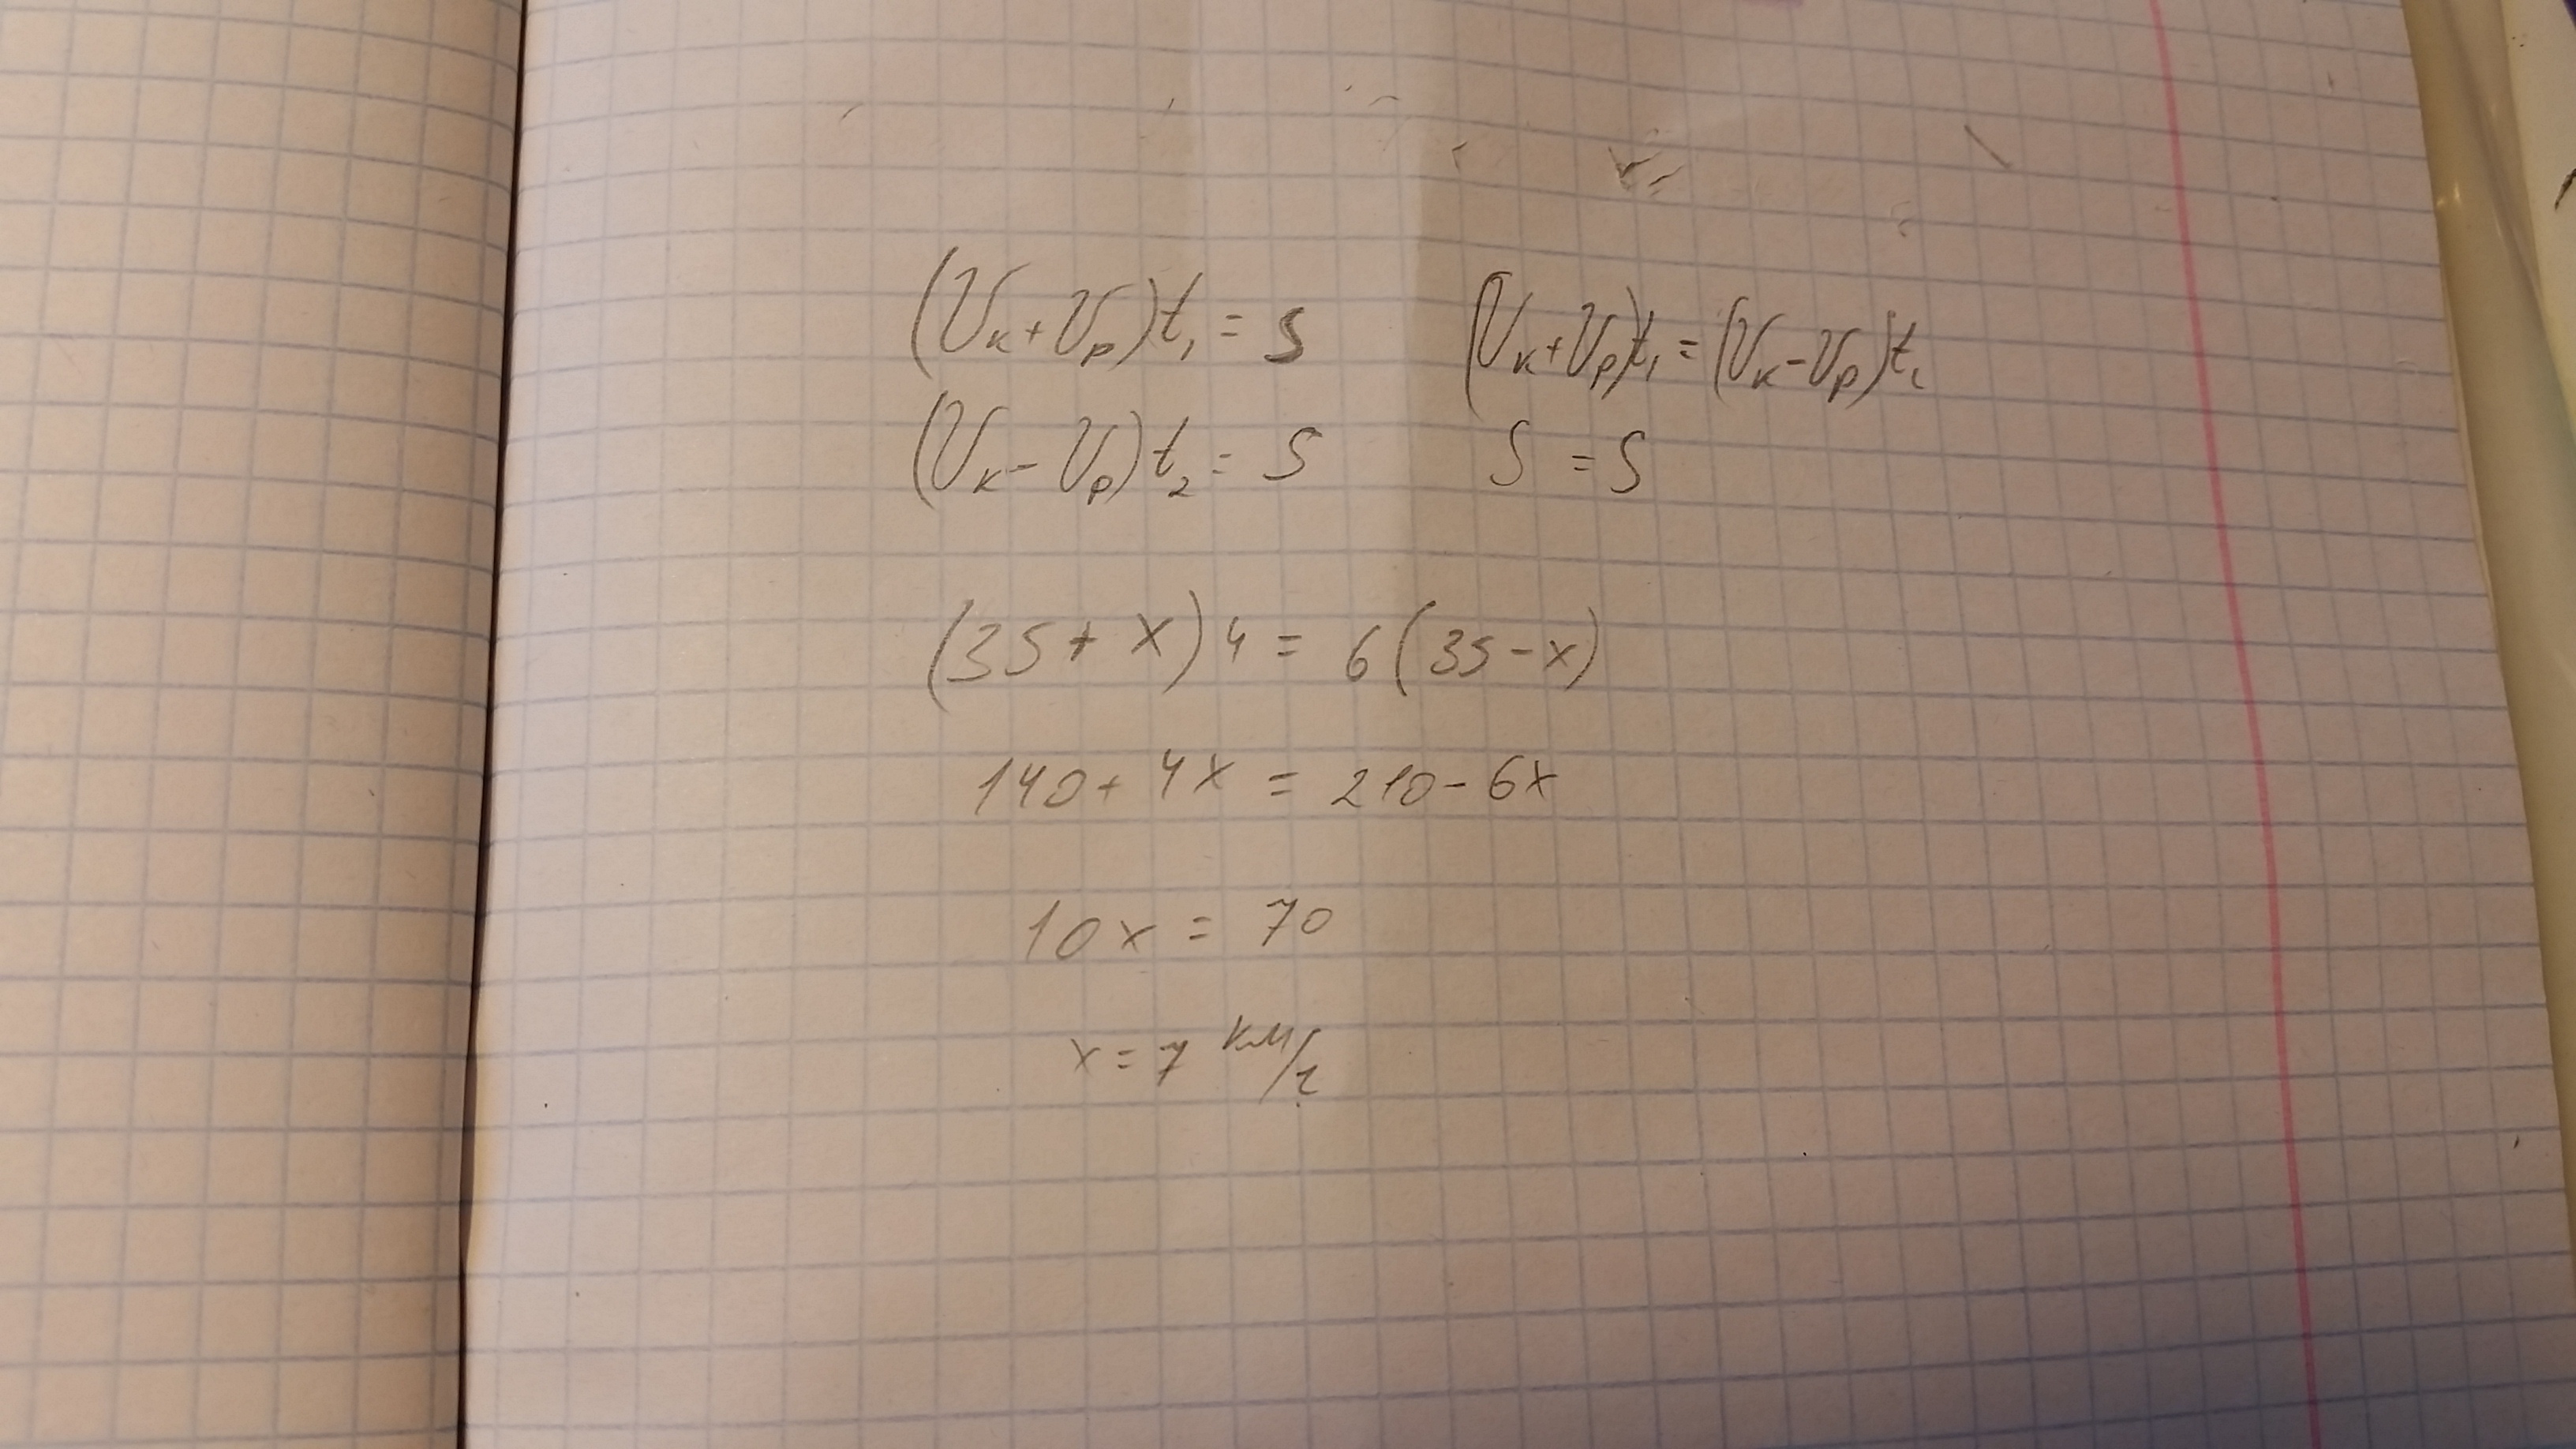 (Vк + Vр) t₁ = S (Vк + Vр) t₁ = (Vк - Vр) t₂
(Vк - Vр) t₂ = S S = S
(35 + x) 4 = 6 (35 - x)
140 + 4x = 210 - 6x
10x = 70
x = 7 км/г